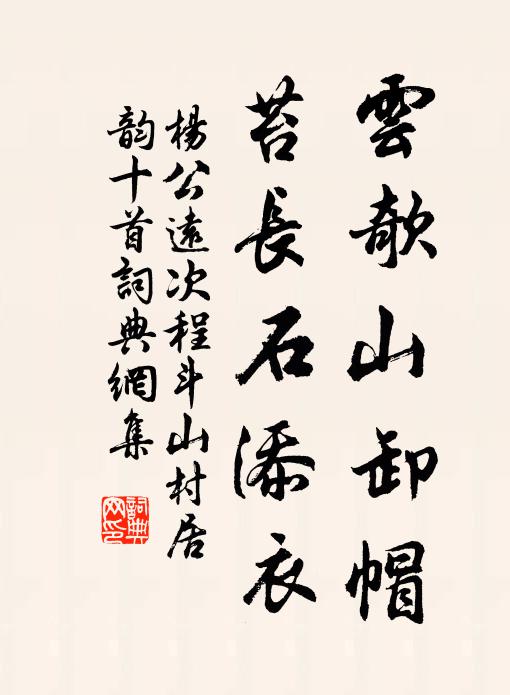 雲欹山卸帽
苔長石添衣
楊公遠次程斗山村居
韵十首詞典網集
詞典网印